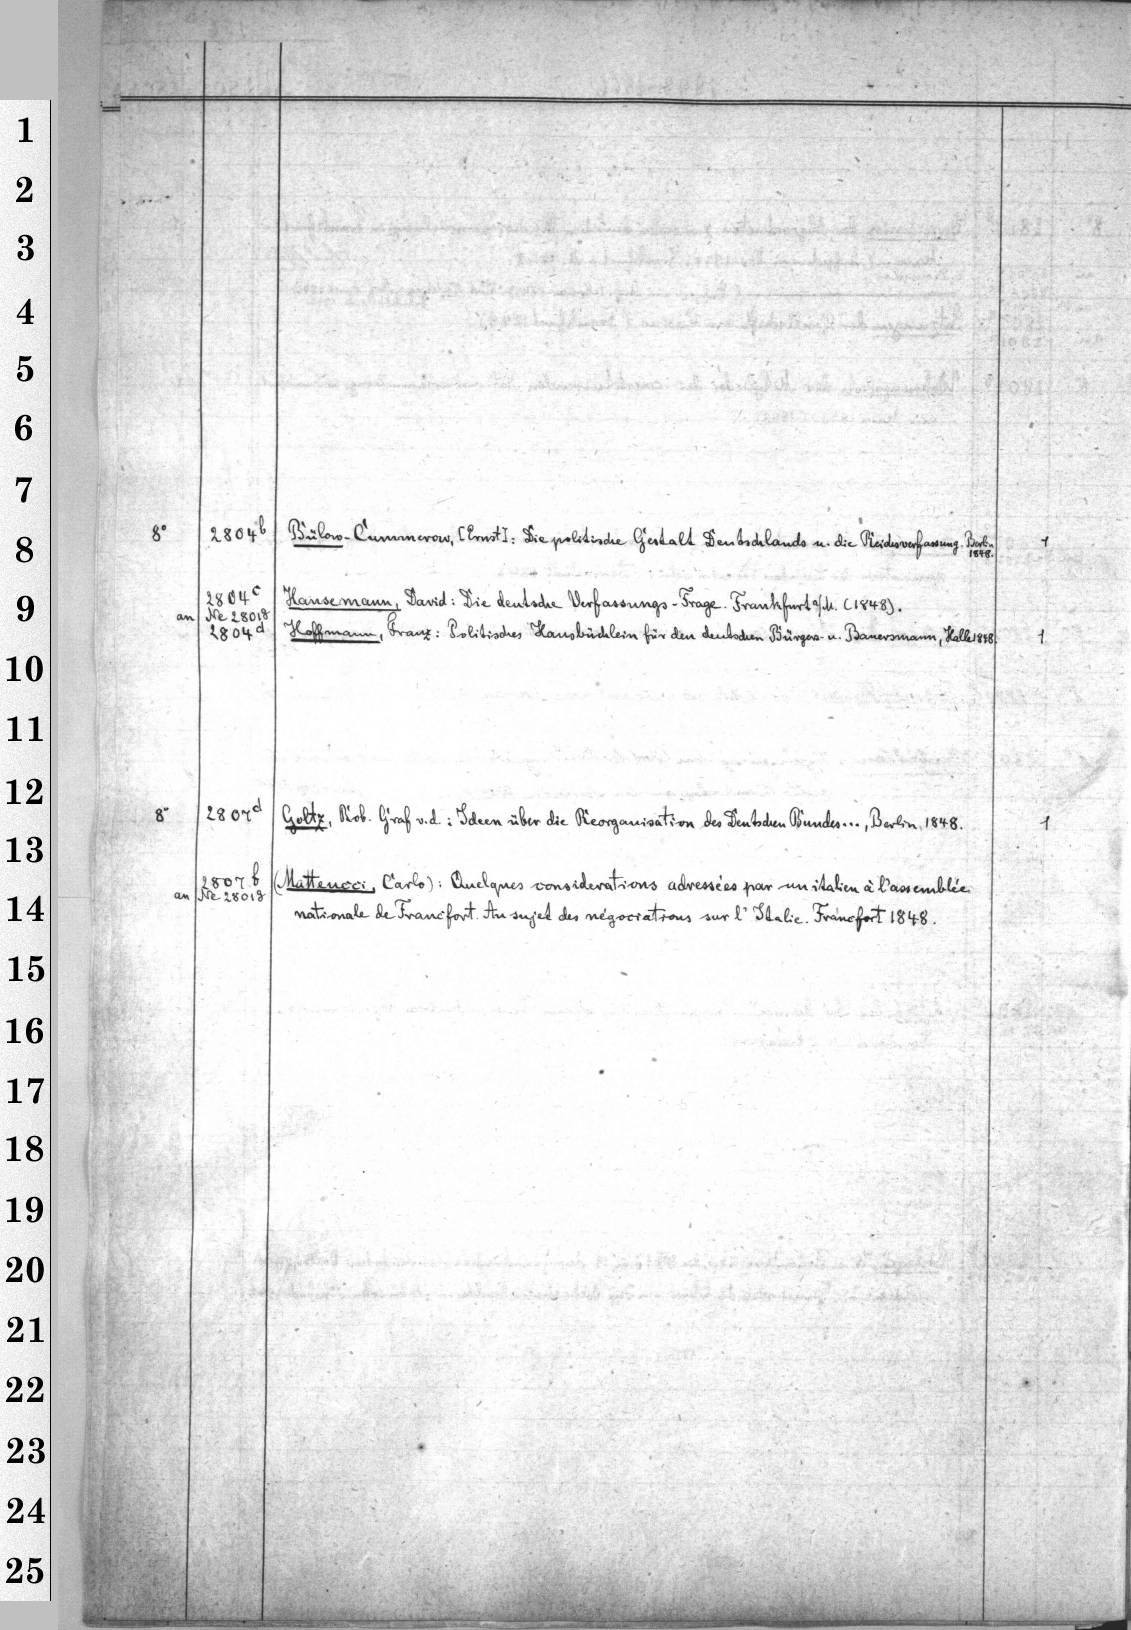 1
2
3
4
5
6
7
8° 2804b Bülow-Cummerow, [Ernst]: Die politische Gestalt Deutschlands u. die Reichsverfassung. Berlin 1848. 1
8
2804c Hansemann, David: Die deutsche Verfassungs-Frage. Frankfurt a/M. (1848).
9
an Ne 2801g
2804d Hoffmann, Franz: Politisches Hausbüchlein für den deutschen Bürgers- u. Bauersmann, Halle 1848. 1
10
11
12
8° 2807d Goltz, Rob. Graf v.d.: Ideen über die Reorganisation des Deutschen Bundes..., Berlin, 1848. 1
13
2807b (Matteucci, Carlo): Quelques considerations adressées par un italien à l'assemblée
an Ne 2801g
14
nationale de Francfort. Au sujet des négociations sur l'Italie. Francfort 1848.
15
16
17
18
19
20
21
22
23
24
25